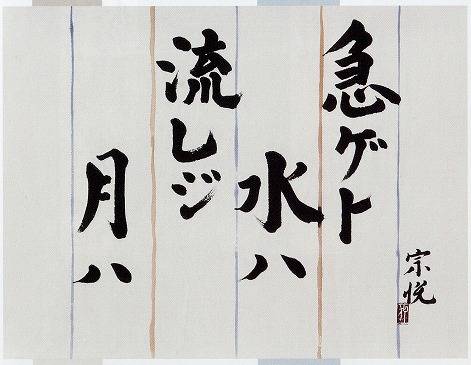 急ゲト
水ハ
流レジ
月ハ
宗悦